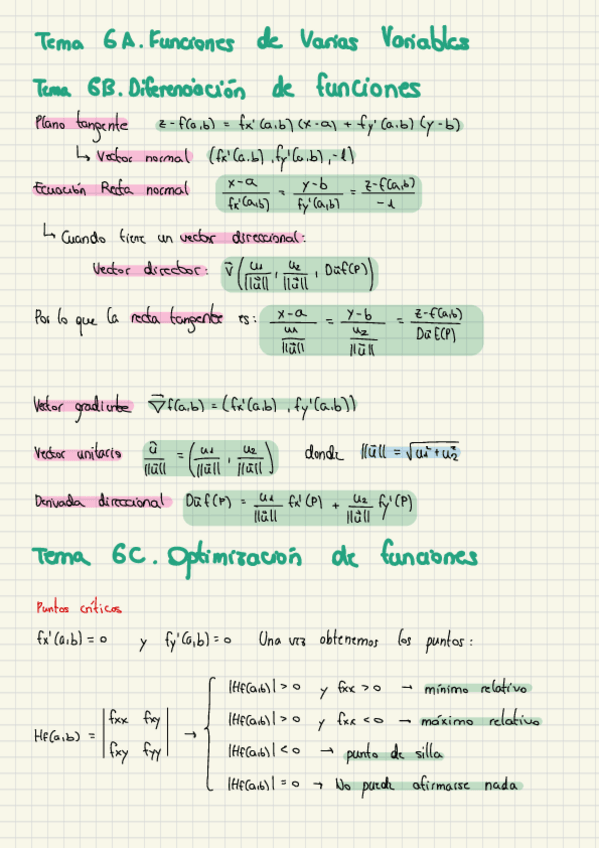 Tema 6A. Funciones de Varias Variables
Tema 6B. Diferenciación de funciones
Plano tangente z-f(a,b) = fx'(a,b)(x-a) + fy'(a,b)(y-b)
↳ Vector normal (fx'(a,b), fy'(a,b), -1)
Ecuación Recta normal (x-a)/(fx'(a,b)) = (y-b)/(fy'(a,b)) = (z-f(a,b))/(-1)
↳ Cuando tiene un vector direccional:
Vector director: v⃗(u1/||u⃗||, u2/||u⃗||, Du⃗f(P))
Por lo que la recta tangente es: (x-a)/(u1/||u⃗||) = (y-b)/(u2/||u⃗||) = (z-f(a,b))/(Du⃗f(P))
Vector gradiente ∇⃗f(a,b) = (fx'(a,b), fy'(a,b))
Vector unitario u⃗/||u⃗|| = (u1/||u⃗||, u2/||u⃗||) donde ||u⃗|| = √(u1²+u2²)
Derivada direccional Du⃗f(P) = u1/||u⃗|| fx'(P) + u2/||u⃗|| fy'(P)
Tema 6C. Optimización de funciones
Puntos críticos
fx'(a,b) = 0 y fy'(a,b) = 0 Una vez obtenemos los puntos:
Hf(a,b) = |fxx fxy|
|fxy fyy| →
|Hf(a,b)| > 0 y fxx > 0 → mínimo relativo
|Hf(a,b)| > 0 y fxx < 0 → máximo relativo
|Hf(a,b)| < 0 → punto de silla
|Hf(a,b)| = 0 → No puede afirmarse nada